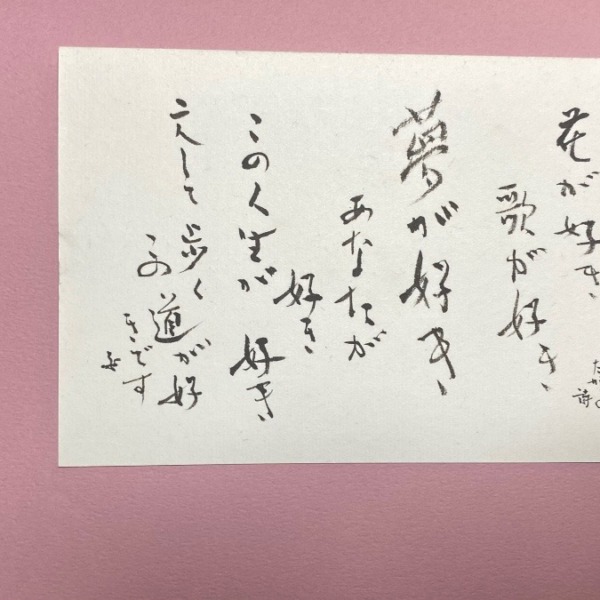 花が好き
歌が好き
夢が好き
あなたが
好き
この人生が
好き
こうして歩く
この道が好
きです